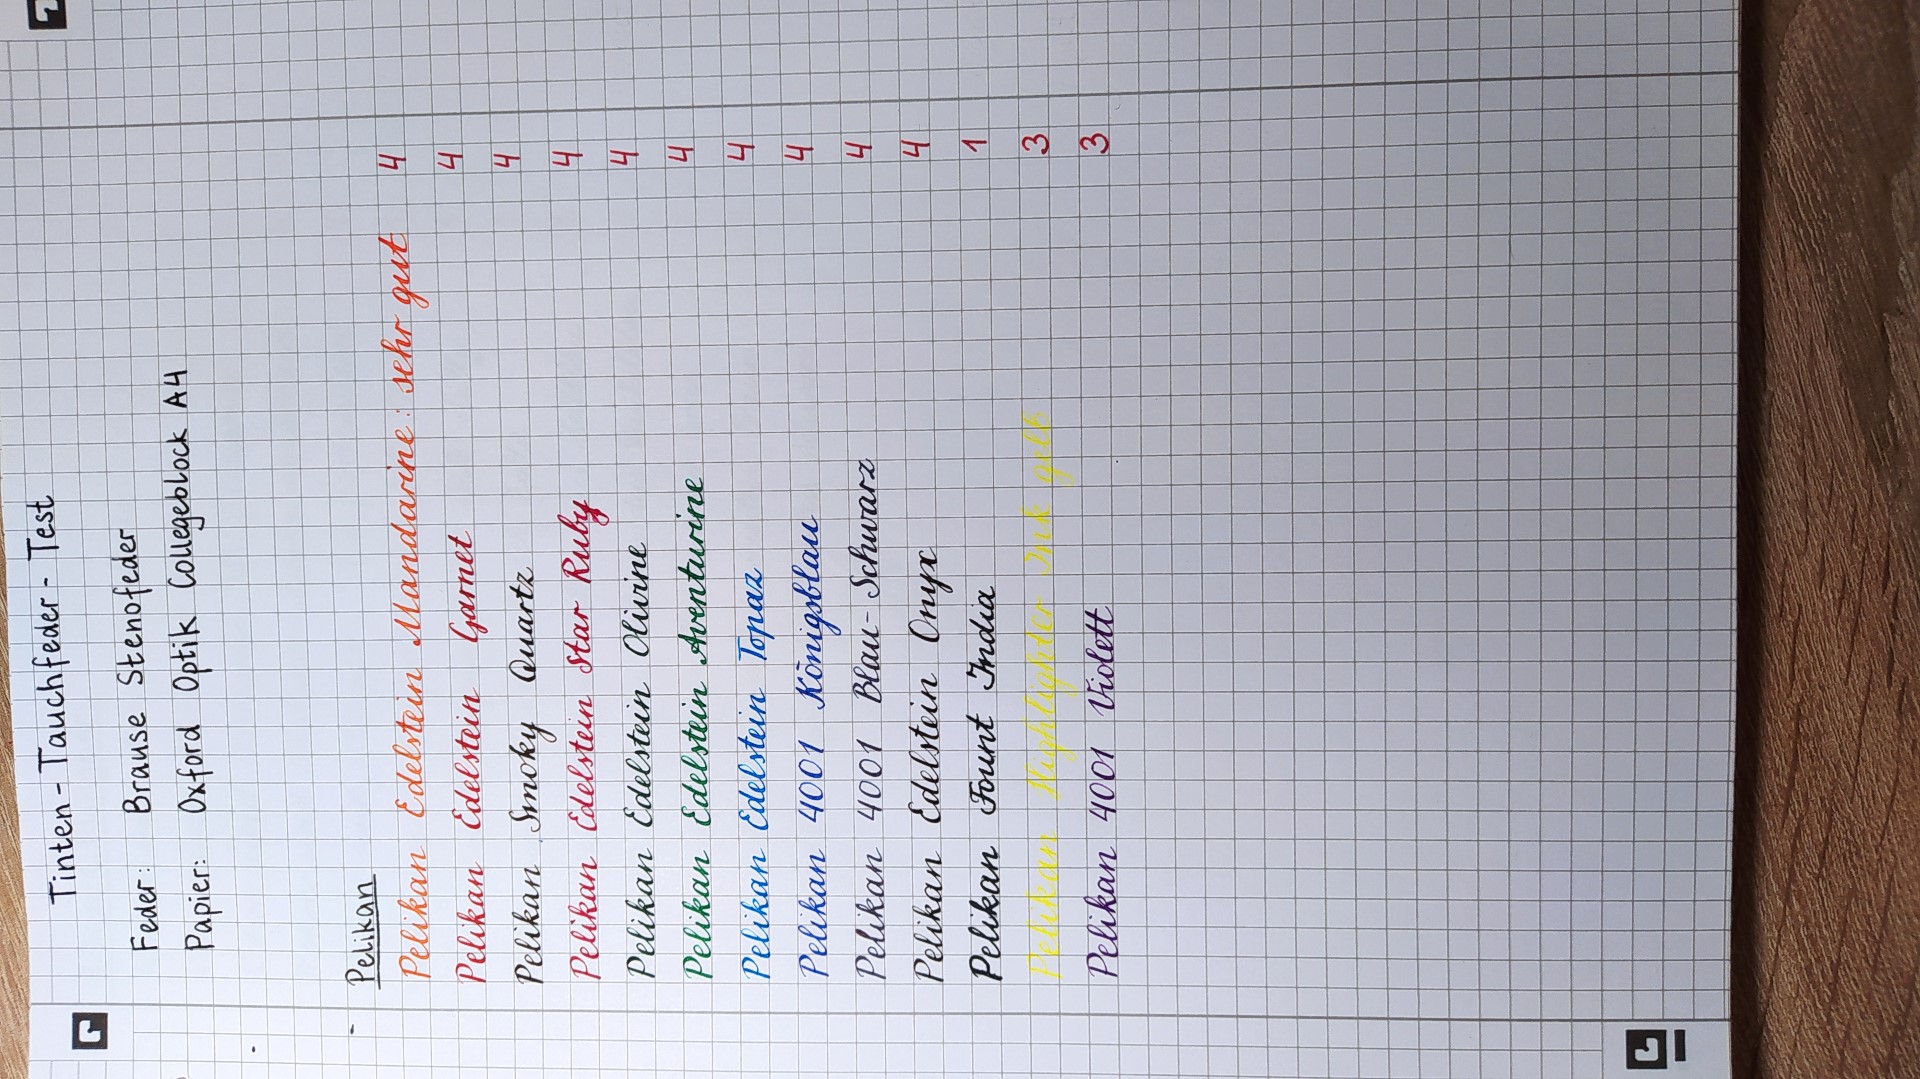 Tinten-Tauchfeder-Test
Feder: Brause Stenofeder
Papier: Oxford Optik Collegeblock A4
Pelikan
Pelikan Edelstein Mandarine: sehr gut 4
Pelikan Edelstein Garnet 4
Pelikan Smoky Quartz 4
Pelikan Edelstein Star Ruby 4
Pelikan Edelstein Olivine 4
Pelikan Edelstein Aventurine 4
Pelikan Edelstein Topaz 4
Pelikan 4001 Königsblau 4
Pelikan 4001 Blau-Schwarz 4
Pelikan Edelstein Onyx 4
Pelikan Fount India 1
Pelikan Highlighter Ink gelb 3
Pelikan 4001 Violett 3